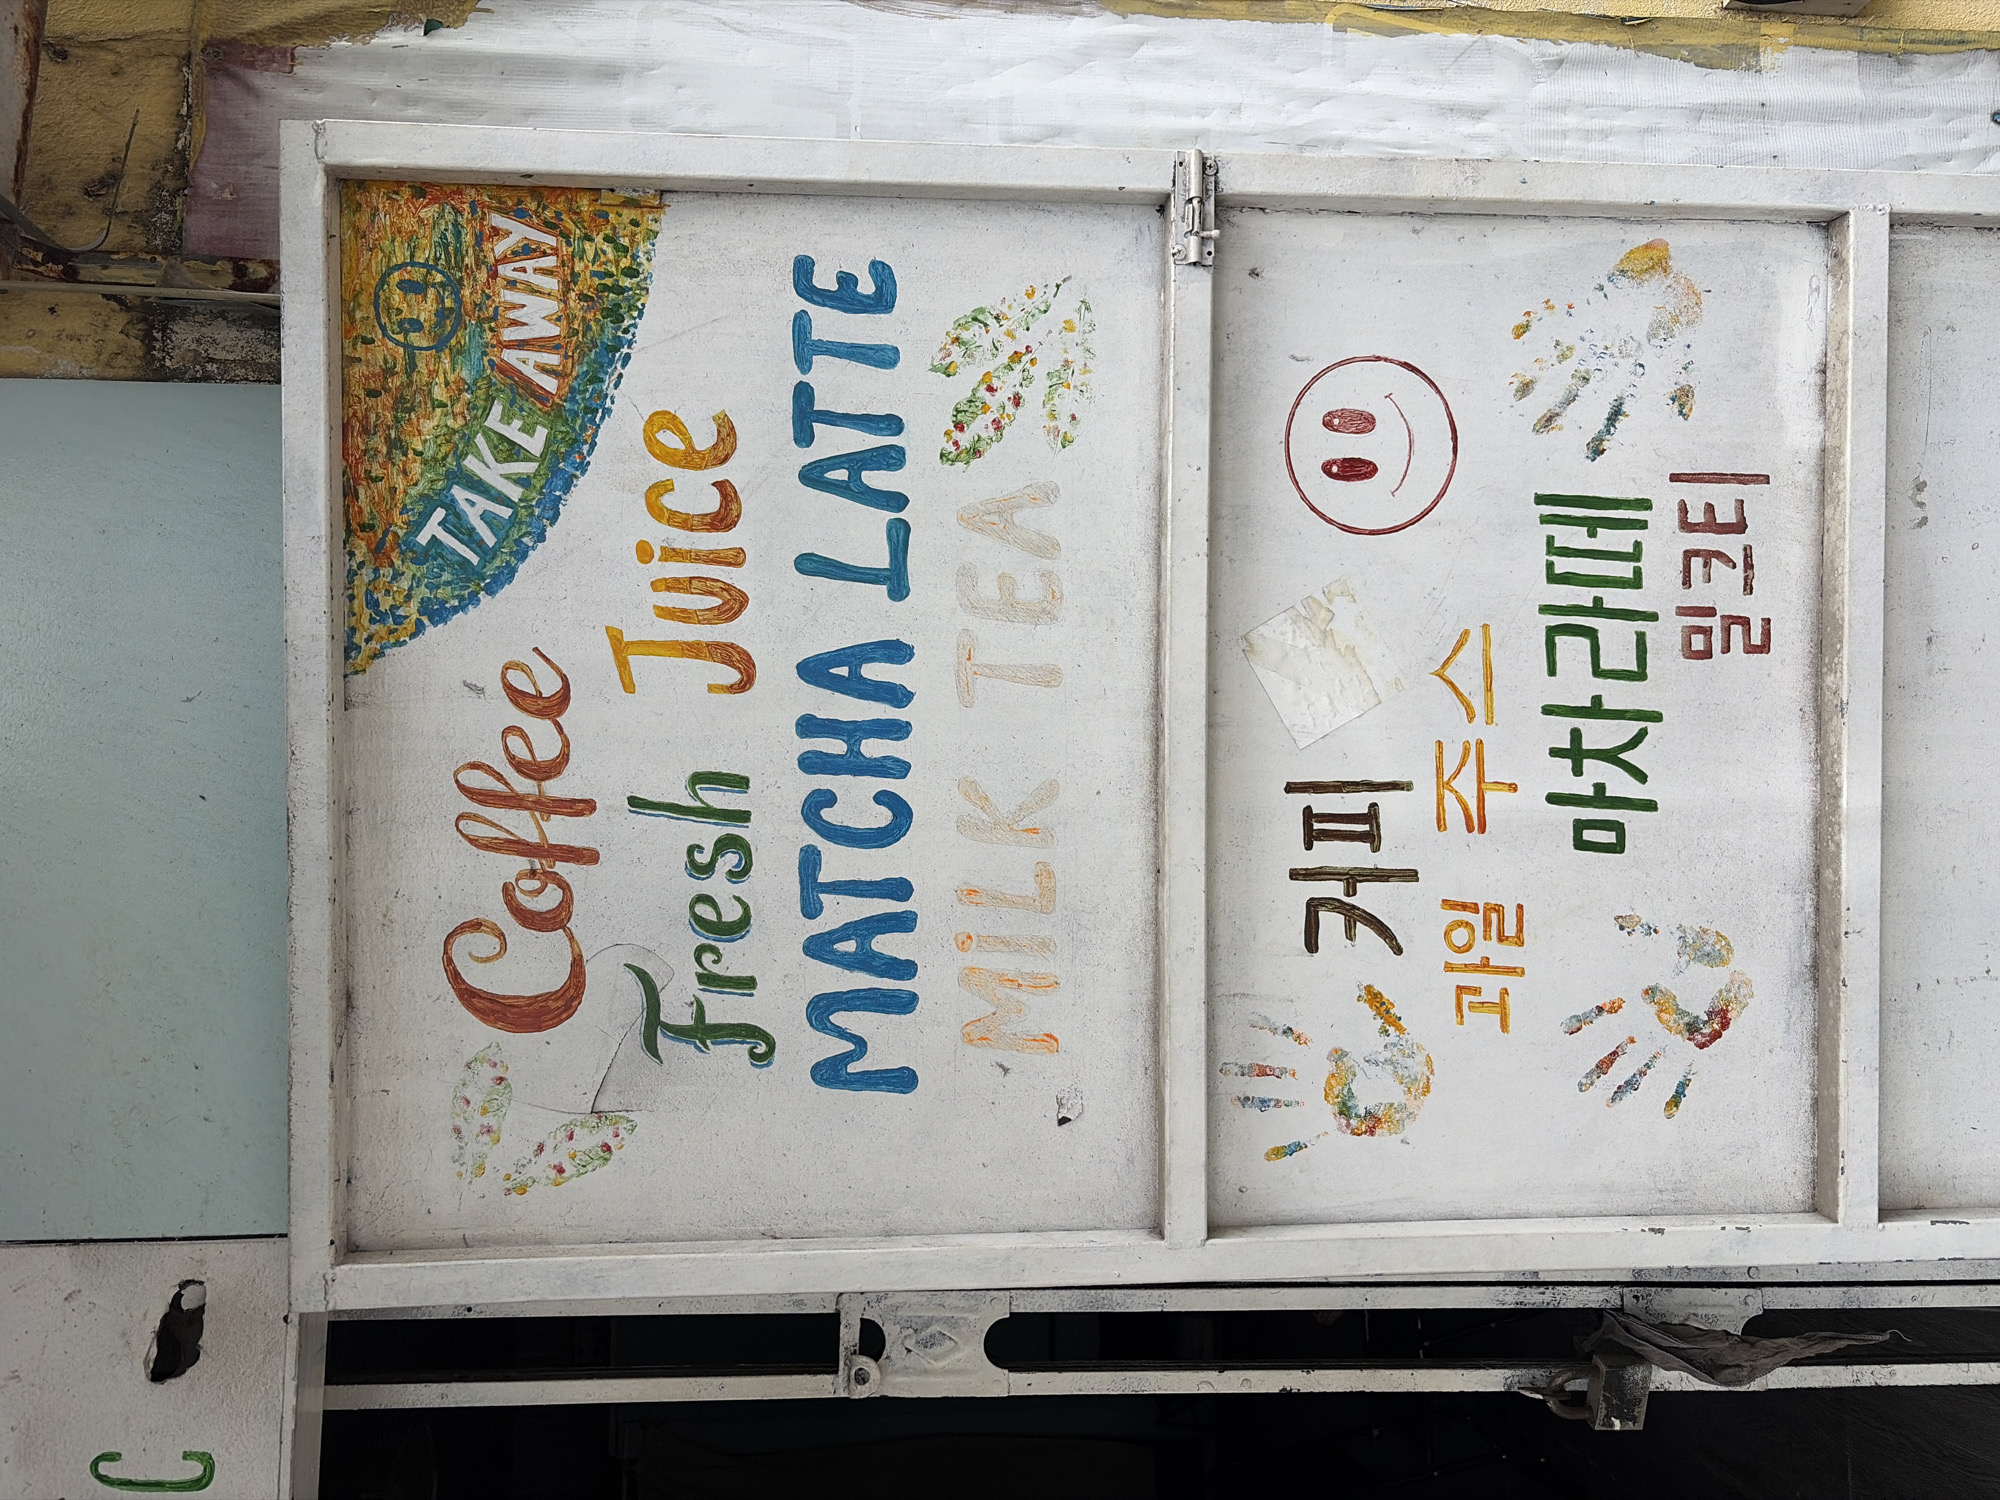 TAKE AWAY
Coffee
Fresh Juice
MATCHA LATTE
MiLK TEA
커피
과일 주스
마차라떼
밀크티
C